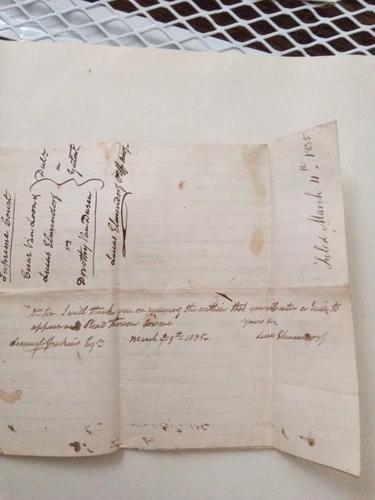 Supreme Court
Cesar Van Loon &
Lucas Elmendorf
vs
Dorothy Van Buren
Lucas Elmendorf
Filed March 11th 1835
Dr Sir. I will thank you on receiving the within that you will enter a Rule to
appear and Plead thereon
yours &c
Lemuel Jenkins Esqr.
March 9th 1835
Lucas Elmendorf